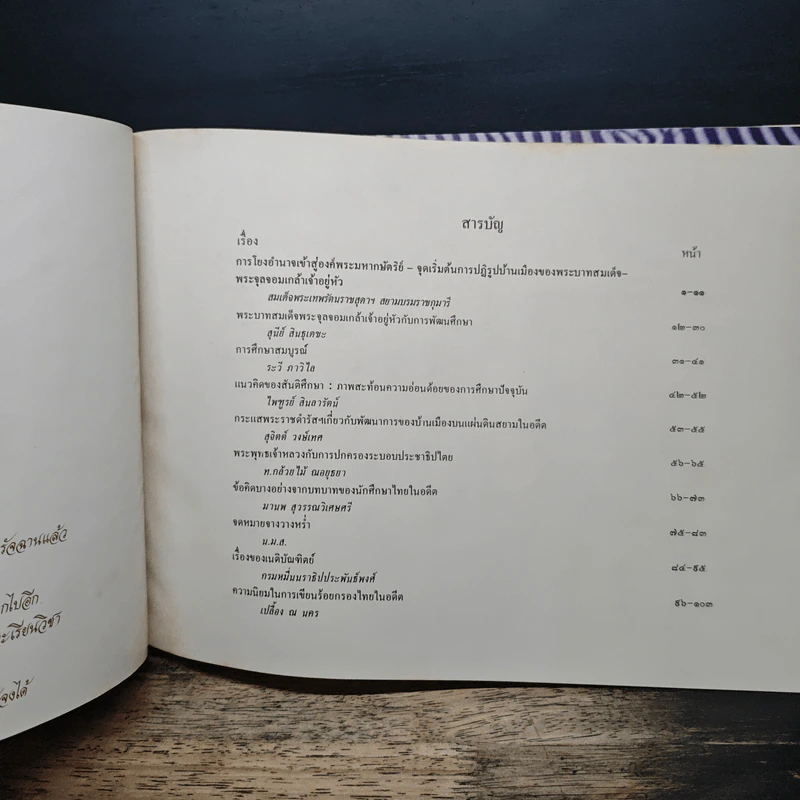 สารบัญ
เรื่อง
หน้า
การโยงอำนาจเข้าสู่องค์พระมหากษัตริย์ – จุดเริ่มต้นการปฏิรูปบ้านเมืองของพระบาทสมเด็จ–
พระจุลจอมเกล้าเจ้าอยู่หัว ๑-๑๑
สมเด็จพระเทพรัตนราชสุดาฯ สยามบรมราชกุมารี
พระบาทสมเด็จพระจุลจอมเกล้าเจ้าอยู่หัวกับการพัฒนศึกษา ๑๒-๓๐
สุนีย์ สินธุเดชะ
การศึกษาสมบูรณ์ ๓๑-๔๑
ระวี ภาวิไล
แนวคิดของสันติศึกษา : ภาพสะท้อนความอ่อนด้อยของการศึกษาปัจจุบัน ๔๒-๕๒
ไพฑูรย์ สินลารัตน์
กระแสพระราชดำรัสฯเกี่ยวกับพัฒนาการของบ้านเมืองบนแผ่นดินสยามในอดีต ๕๓-๕๕
สุจิตต์ วงษ์เทศ
พระพุทธเจ้าหลวงกับการปกครองระบอบประชาธิปไตย ๕๖-๖๕
ท.กล้วยไม้ ณอยุธยา
ข้อคิดบางอย่างจากบทบาทของนักศึกษาไทยในอดีต ๖๖-๗๓
มานพ สุวรรณวิเศษศรี
จดหมายจางวางหร่ำ ๗๕-๘๓
น.ม.ส.
เรื่องของเนติบัณฑิตย์ ๘๔-๙๕
กรมหมื่นนราธิปประพันธ์พงศ์
ความนิยมในการเขียนร้อยกรองไทยในอดีต ๙๖-๑๐๓
เปลื้อง ณ นคร
รัจฉานแล้ว
กไปอีก
ะเรียนวิชา
จงได้